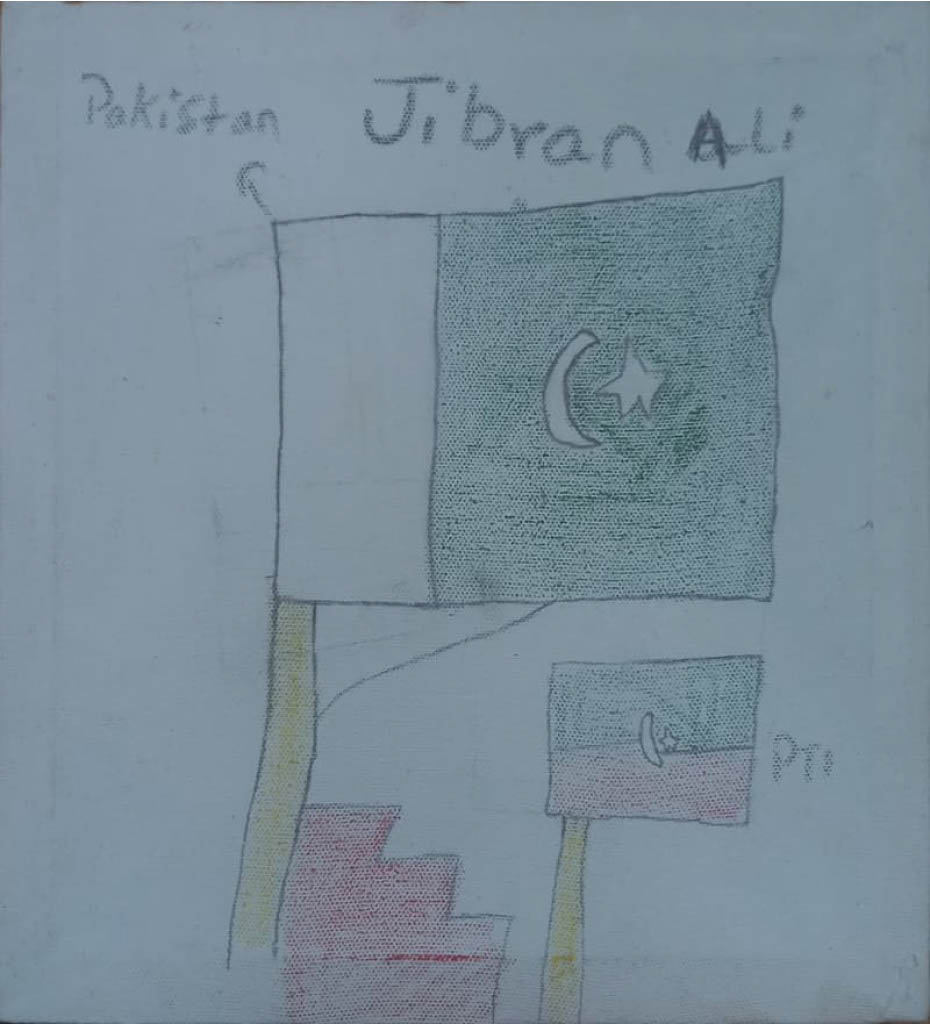 Pakistan Jibran Ali
PTI